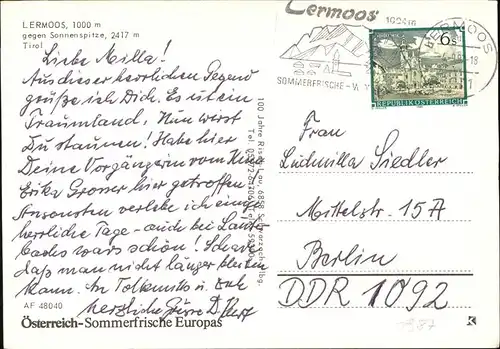 LERMOOS, 1000 m
gegen Sonnenspitze, 2417 m
Tirol
Liebe Milla!
Aus dieser herrlichen Gegend
grüße ich Dich. Es ist ein
Traumland. Nun wirst
Du staunen! Habe hier
Deine Vorgängerin vom
Erika Grosser hier getroffen
Ansonsten verlebe ich eine
herrliche Tage - auch bei
wars schön! Schade
daß man nicht länger bleiben
kann. An
herzliche Grüsse D.
AF 48040
Österreich-Sommerfrische Europas
100 Jahre Risch-Lau, 6858 Schwarzach, Vlbg.
Lermoos
SOMMERFRISCHE
LERMOOS
6
REPUBLIK ÖSTERREICH
Frau
Ludmilla Siedler
Mittelstr. 15A
Berlin
DDR 1092